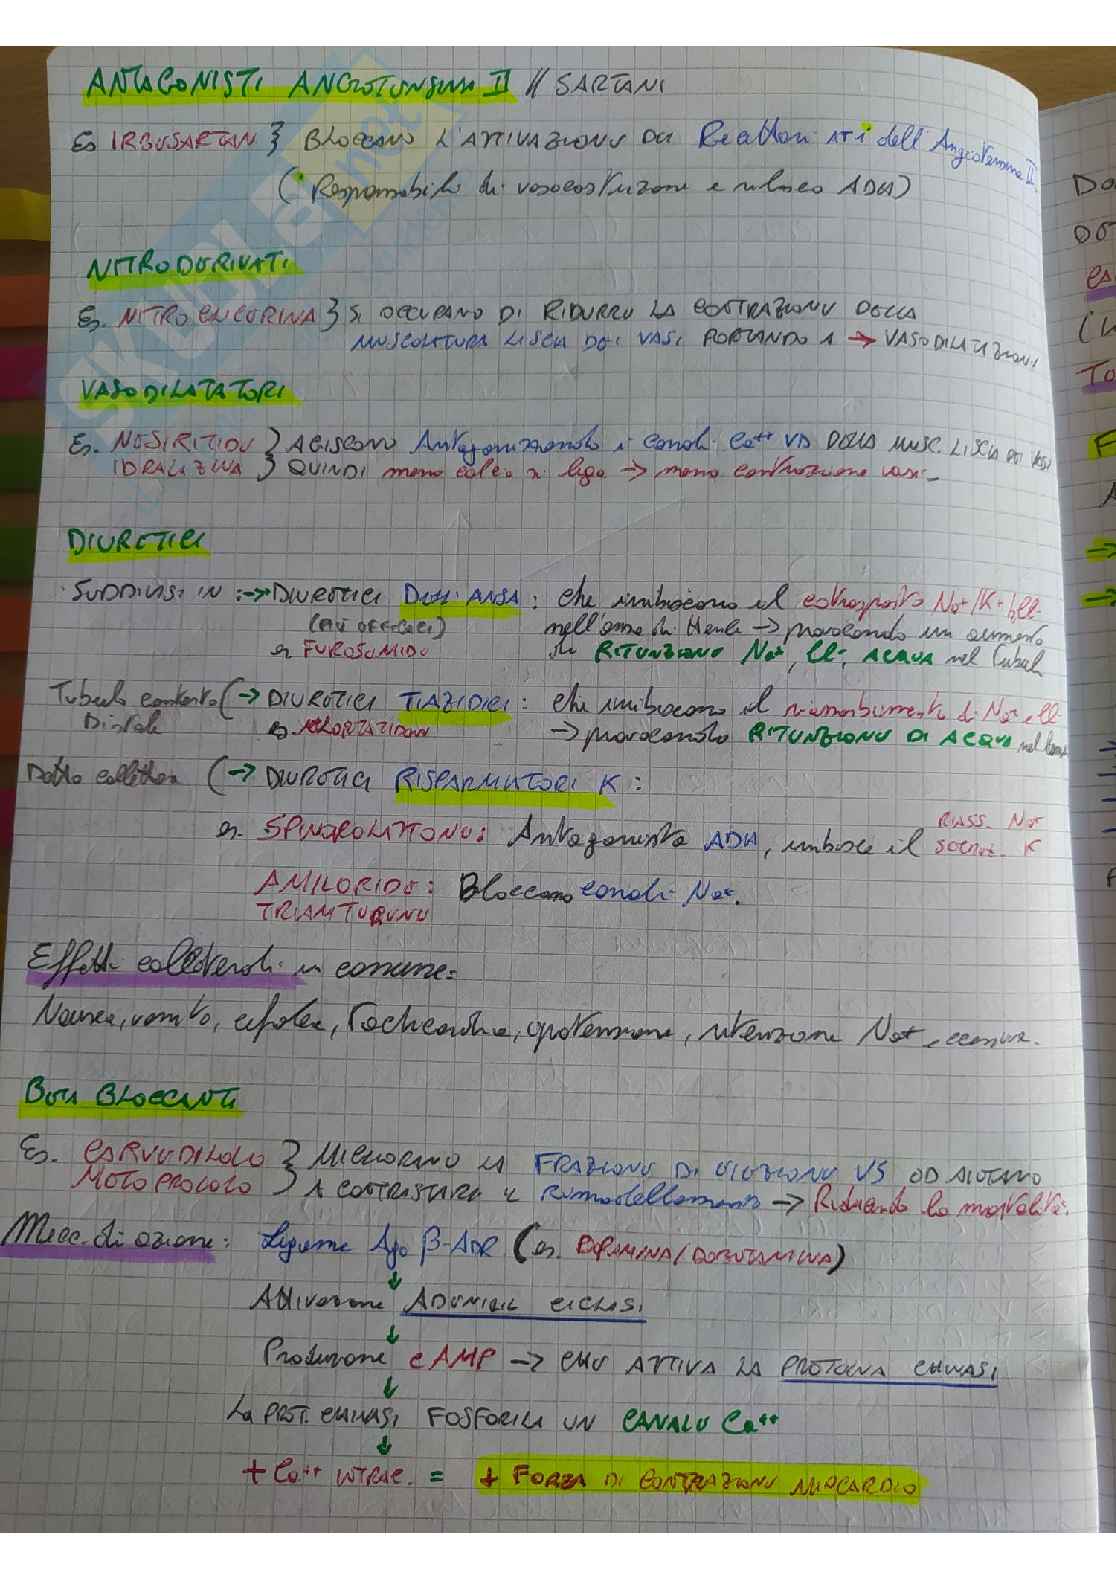 ANTAGONISTI ANGIOTENSINA II // SARTANI
Es IRBESARTAN } BLOCCANO L'ATTIVAZIONE DEI Recettori AT1 dell'Angiotensina II
(Responsabile di vasocostrizione e rilascio ADH)
NITRODERIVATI
Es. NITROGLICERINA } SI OCCUPANO DI RIDURRE LA CONTRAZIONE DELLA
MUSCOLATURA LISCIA DEI VASI PORTANDO A → VASODILATAZIONE
VASODILATATORI
Es. NESIRITIDE } AGISCONO Antagonizzando i canali Ca++ VD DELLA MUSC. LISCIA DEI VASI
IDRALAZINA } QUINDI meno calcio si lega → meno contrazione vasi
DIURETICI
SUDDIVISI IN :→ DIURETICI DELL'ANSA : che inibiscono il cotrasporto Na+/K+/Cl-
(PIÙ EFFICACI) nell'ansa di Henle → provocando un aumento
es FUROSEMIDE di RITENZIONE Na+, Cl-, ACQUA nel Tubulo
Tubulo contorto (→ DIURETICI TIAZIDICI : che inibiscono il riassorbimento di Na+ e Cl-
Distale es. CLORTALIDONE → provocando RITENZIONE DI ACQUA nel
Dotto collettore (→ DIURETICI RISPARMIATORI K :
es. SPIRONOLATTONE: Antagonista ADH, inibisce il RIASS. Na+
SECREZ. K
AMILORIDE : Bloccano canali Na+.
TRIAMTERENE
Effetti collaterali in comune:
Nausea, vomito, cefalea, Tachicardia, ipotensione, ritenzione Na+
BETA BLOCCANTI
Es. CARVEDILOLO } MIGLIORANO LA FRAZIONE DI EIEZIONE VS ED AIUTANO
METOPROLOLO } A CONTRASTARE IL Rimodellamento → Riducendo la mortalità.
Mecc. di azione: Legame Ago β-ADR (es. DOPAMINA/DOBUTAMINA)
↓
Attivazione ADENILIL CICLASI
↓
Produzione cAMP → CHE ATTIVA LA PROTEINA CHINASI
↓
La PROT. CHINASI FOSFORILA UN CANALE Ca++
↓
+ Ca++ INTRAC. = + FORZA DI CONTRAZIONE MIOCARDIO